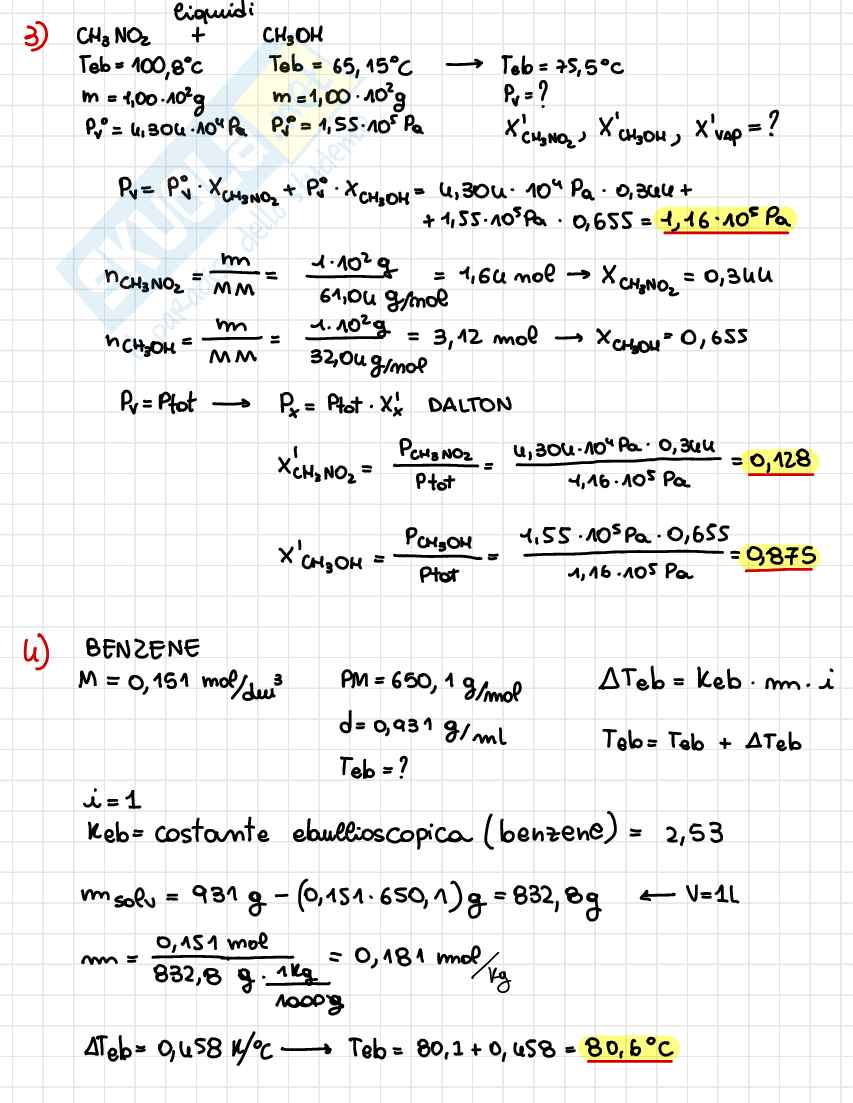 3) liquidi
CH₃NO₂ + CH₃OH
Teb = 100,8°C Teb = 65,15°C → Teb = 75,5°C
m = 1,00·10²g m = 1,00·10²g Pv = ?
Pv° = 4,304·10⁴ Pa Pv° = 1,55·10⁵ Pa X'CH₃NO₂, X'CH₃OH, X'VAP = ?
Pv = Pv°·XCH₃NO₂ + Pv°·XCH₃OH = 4,304·10⁴ Pa·0,344 +
+ 1,55·10⁵ Pa · 0,655 = 1,16·10⁵ Pa
nCH₃NO₂ = m/MM = 1·10² g/61,04 g/mol = 1,64 mol → XCH₃NO₂ = 0,344
nCH₃OH = m/MM = 1·10² g/32,04 g/mol = 3,12 mol → XCH₃OH = 0,655
Pv = Ptot → Px = Ptot·X'x DALTON
X'CH₃NO₂ = PCH₃NO₂/Ptot = 4,304·10⁴ Pa·0,344/1,16·10⁵ Pa = 0,128
X'CH₃OH = PCH₃OH/Ptot = 1,55·10⁵ Pa·0,655/1,16·10⁵ Pa = 0,875
4) BENZENE
M = 0,151 mol/dm³ PM = 650,1 g/mol ΔTeb = Keb·m·i
d = 0,931 g/ml
Teb = Teb + ΔTeb
Teb = ?
i = 1
Keb = costante ebullioscopica (benzene) = 2,53
m solv = 931 g - (0,151·650,1) g = 832,8 g ← V = 1L
m = 0,151 mol/832,8 g · 1 kg/1000 g = 0,181 mol/kg
ΔTeb = 0,458 K/°C → Teb = 80,1 + 0,458 = 80,6°C
SKUOLA